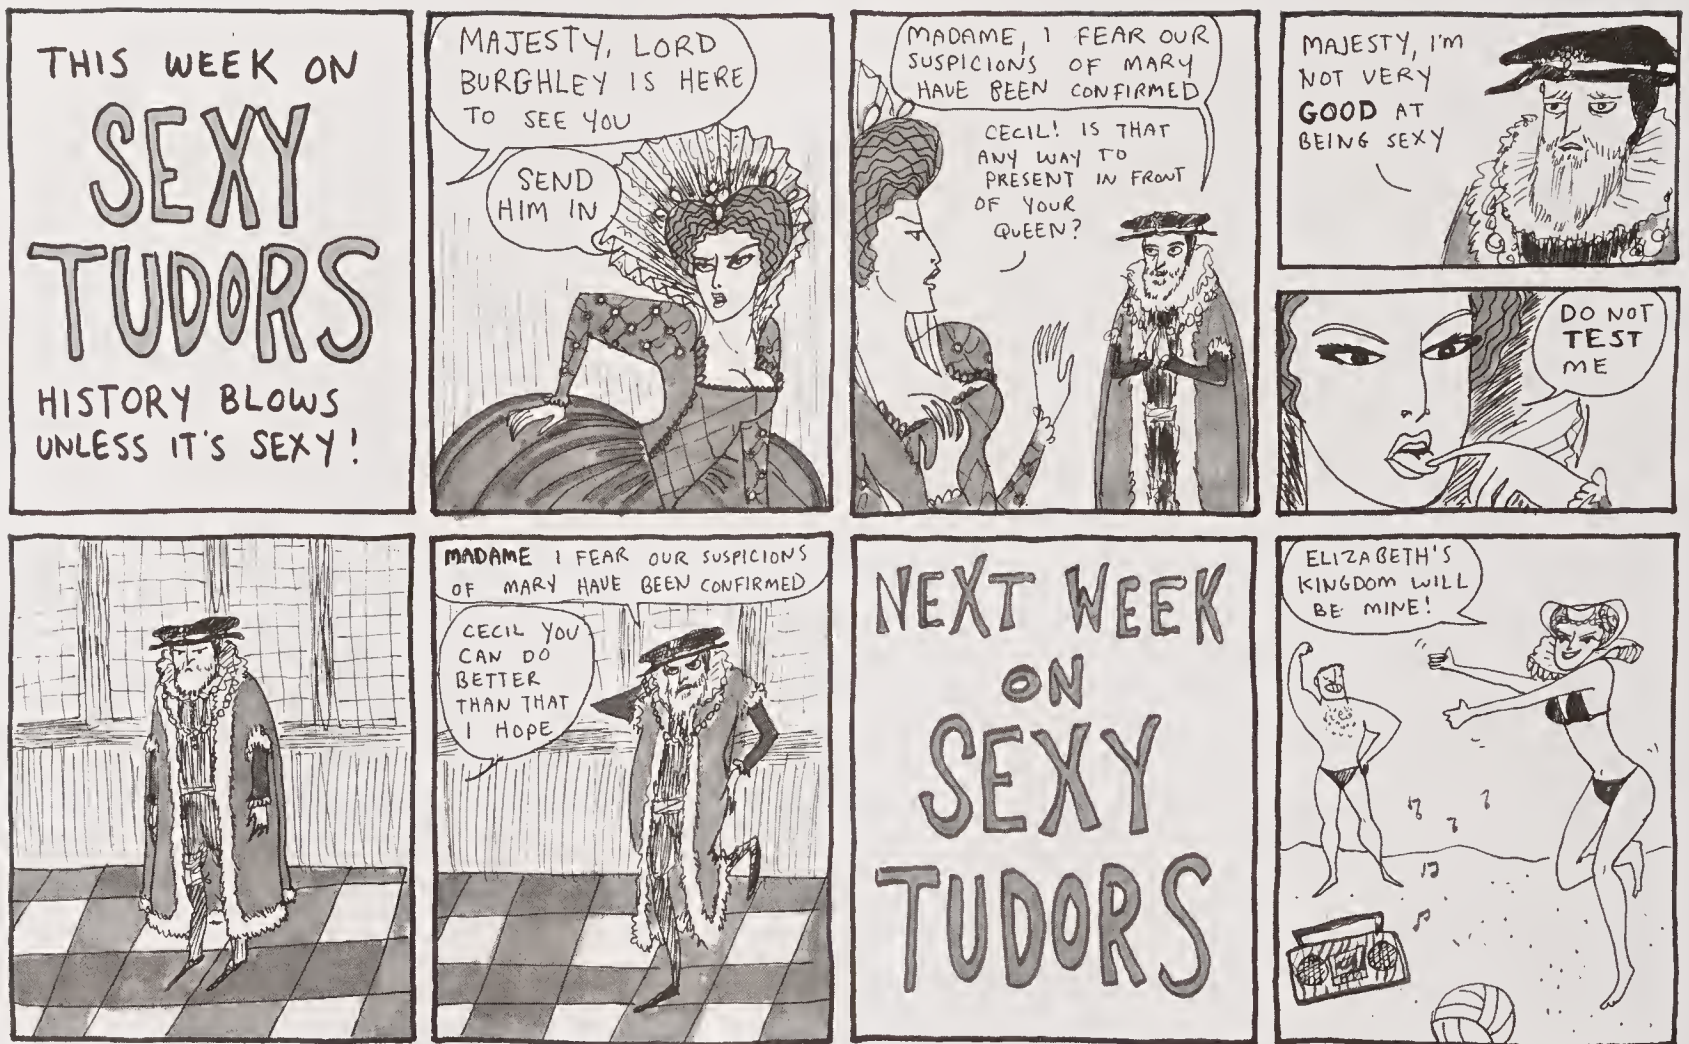 THIS WEEK ON
SEXY
TUDORS
HISTORY BLOWS
UNLESS IT'S SEXY!
MAJESTY, LORD
BURGHLEY IS HERE
TO SEE YOU
SEND
HIM IN
MADAME, I FEAR OUR
SUSPICIONS OF MARY
HAVE BEEN CONFIRMED
CECIL! IS THAT
ANY WAY TO
PRESENT IN FRONT
OF YOUR
QUEEN?
MAJESTY, I'M
NOT VERY
GOOD AT
BEING SEXY
DO NOT
TEST
ME
MADAME I FEAR OUR SUSPICIONS
OF MARY HAVE BEEN CONFIRMED
CECIL YOU
CAN DO
BETTER
THAN THAT
I HOPE
NEXT WEEK
ON
SEXY
TUDORS
ELIZABETH'S
KINGDOM WILL
BE MINE!